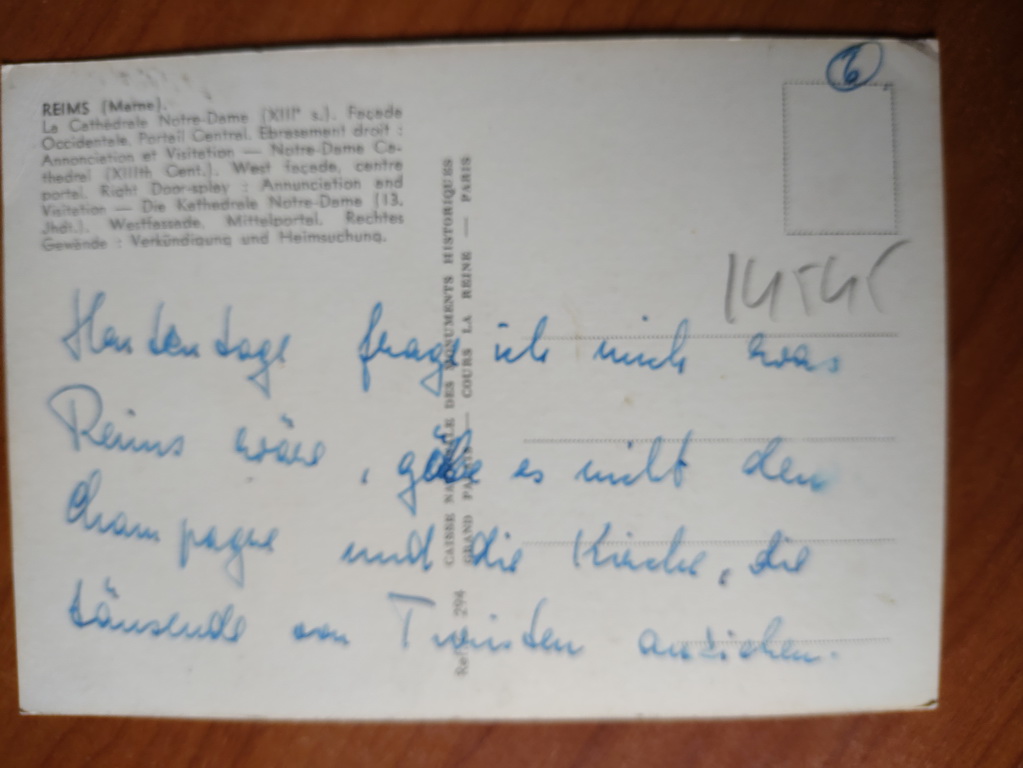 REIMS (Marne).
La Cathédrale Notre-Dame (XIIIᵉ s.). Façade
Occidentale. Portail Central. Ebrasement droit :
Annonciation et Visitation — Notre-Dame Ca-
thedral (XIIIth Cent.). West facade, centre
portal. Right Door-splay : Annunciation and
Visitation — Die Kathedrale Notre-Dame (13.
Jhdt.). Westfassade. Mittelportal. Rechtes
Gewände : Verkündigung und Heimsuchung.
CAISSE NATIONALE DES MONUMENTS HISTORIQUES
GRAND PALAIS — COURS LA REINE — PARIS
294
6
14545
Heutentage frage ich mich was
Reims wäre, gäbe es nicht den
Champagne und die Kirche, die
täusende von Touristen anziehen.